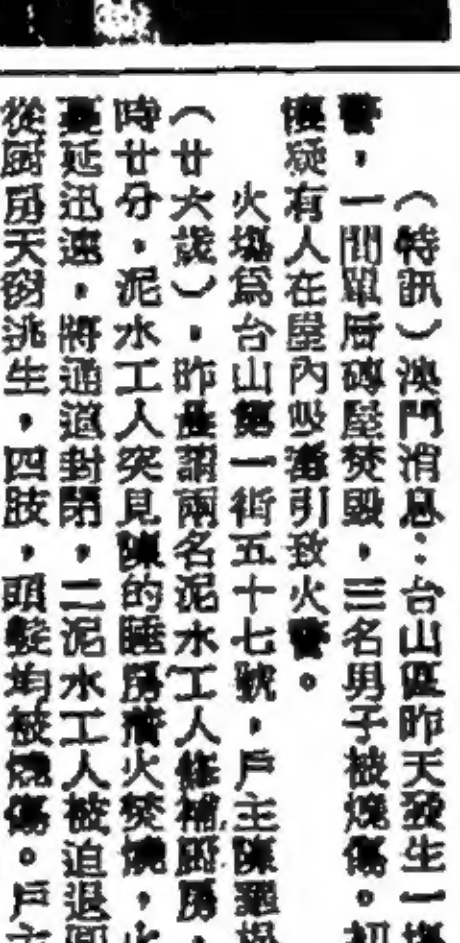 （特訊）澳門消息：台山區昨天發生一塲
警，一間單層磚屋焚毀，三名男子被燒傷。初
懷疑有人在屋內吸毒引致火警。
火塲爲台山第一街五十七號，戶主陳
（廿六歲），昨僱請兩名泥水工人修補厨房，
時廿分，泥水工人突見陳的睡房着火焚燒，火
蔓延迅速，將通道封閉，二泥水工人被迫退
從厨房天窗逃生，四肢，頭髮均被燒傷。戶主